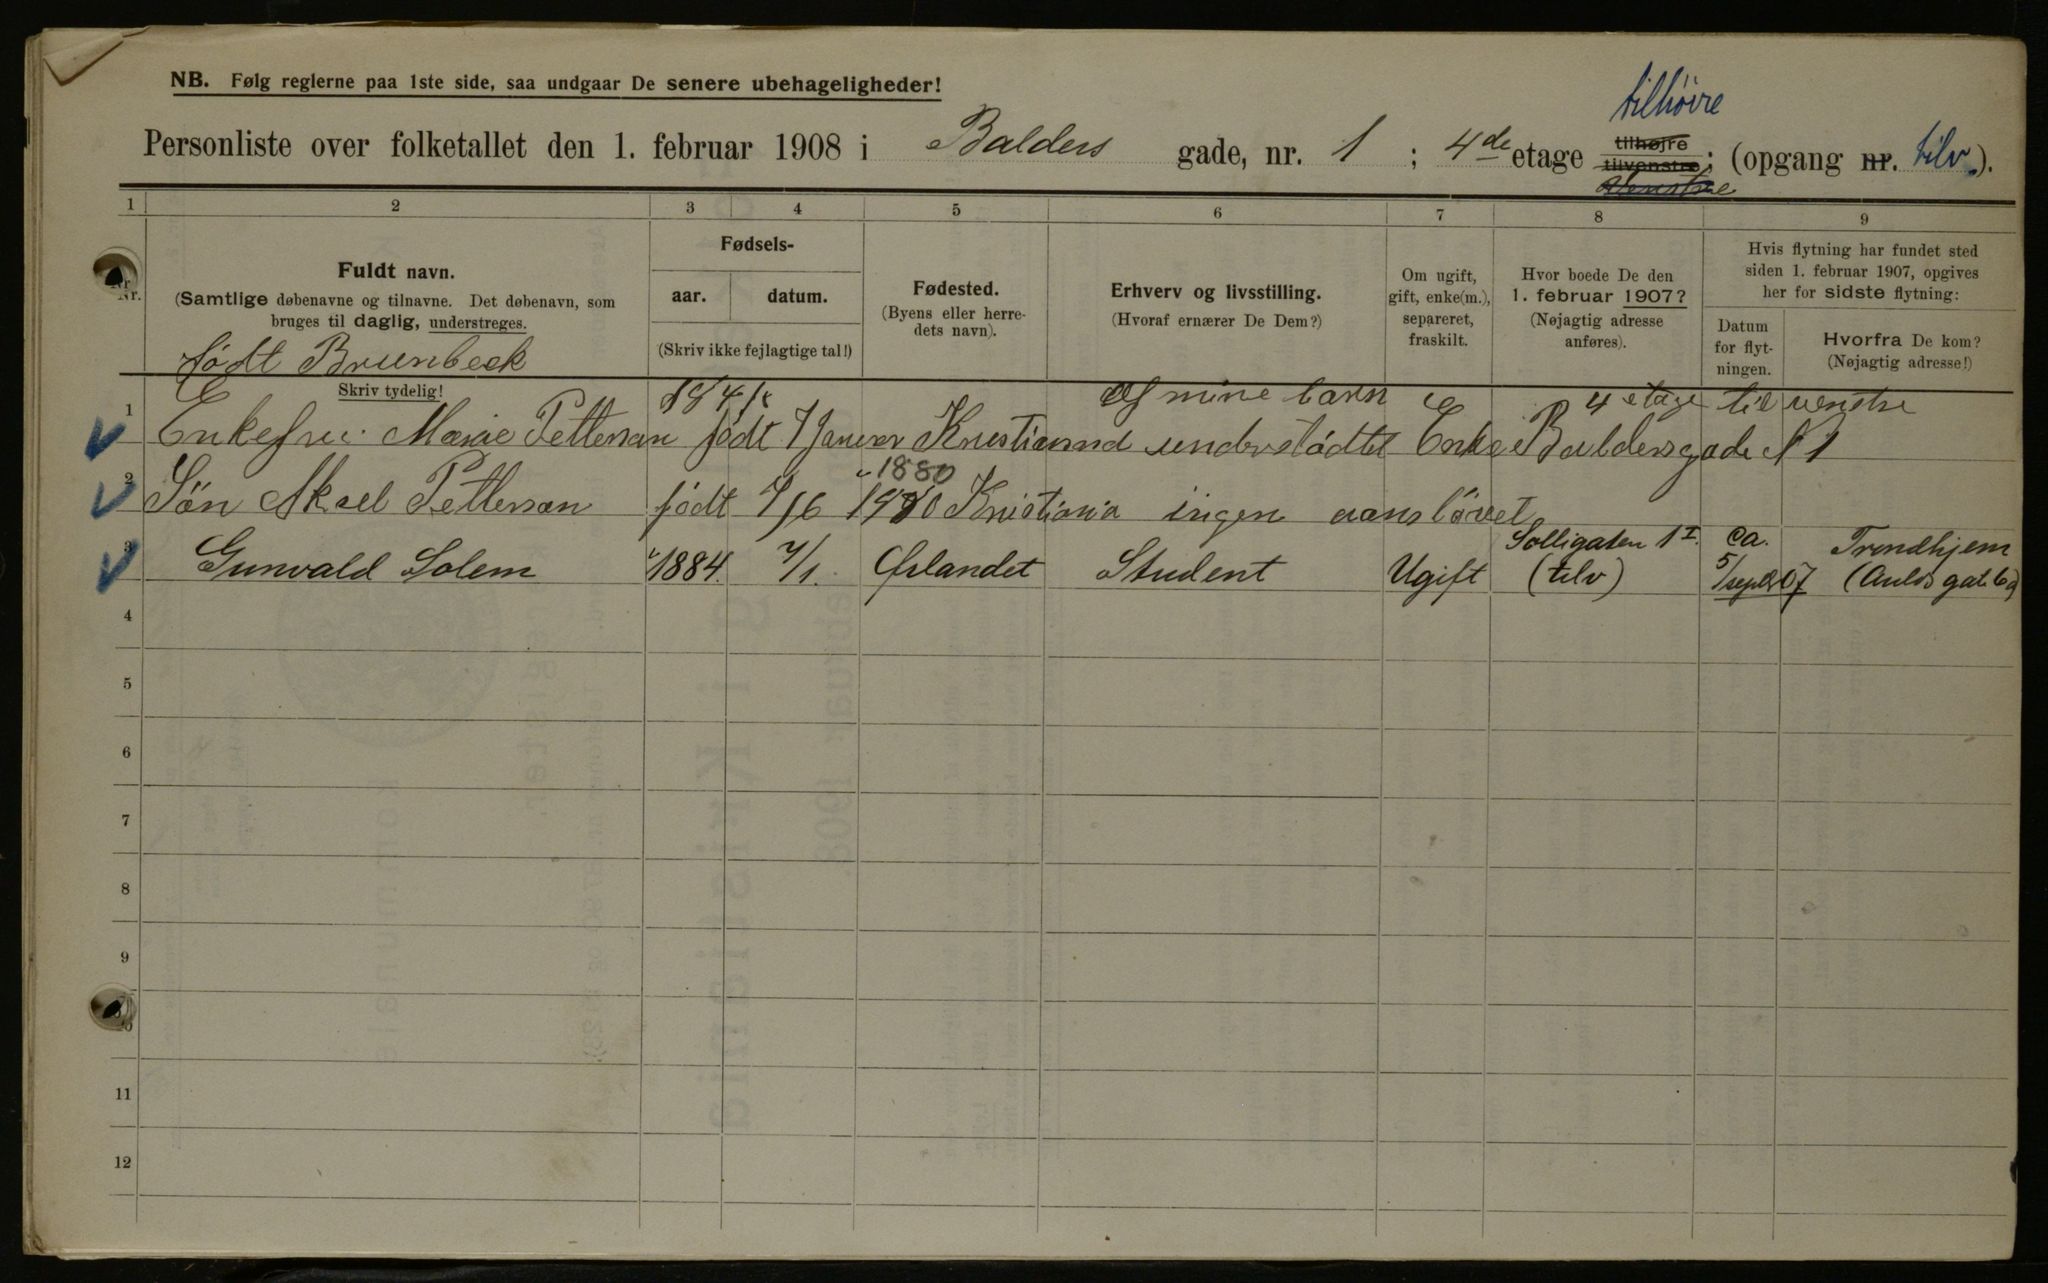 NB. Følg reglerne paa 1ste side, saa undgaar De senere ubehageligheder!
tilhöire
Personliste over folketallet den 1. februar 1908 i Balders gade, nr. 1 ; 4de etage tilhøjre tilvenstre ; (opgang nr. tilv.).
Venstre
1 2 3 4 5 6 7 8 9
Nr.
Fuldt navn.
(Samtlige døbenavne og tilnavne. Det døbenavn, som
bruges til daglig, understreges.
født Brunbeck
Skriv tydelig!
Fødsels-
aar. datum.
(Skriv ikke fejlagtige tal!)
Fødested.
(Byens eller herre-
dets navn).
Erhverv og livsstilling.
(Hvoraf ernærer De Dem?)
Om ugift,
gift, enke(m.),
separeret,
fraskilt.
Hvor boede De den
1. februar 1907?
(Nøjagtig adresse
anføres).
Hvis flytning har fundet sted
siden 1. februar 1907, opgives
her for sidste flytning:
Datum
for flyt-
ningen.
Hvorfra De kom?
(Nøjagtig adresse!)
Af mine barn 4 etage til venstre
1 Enkefru Marie Pettersan født 7 Januar Kristiansand understødtet Enke Baldersgade N 1
1880
2 Søn Aksel Pettersan født 4/6 Kristiania ingen
Solligaten 1 I. ca. Trondhjem
3 Gunvald Solem 1884. 7/1. Ørlandet Student Ugift (tilv) 5/sept. 07
4
5
6
7
8
9
10
11
12